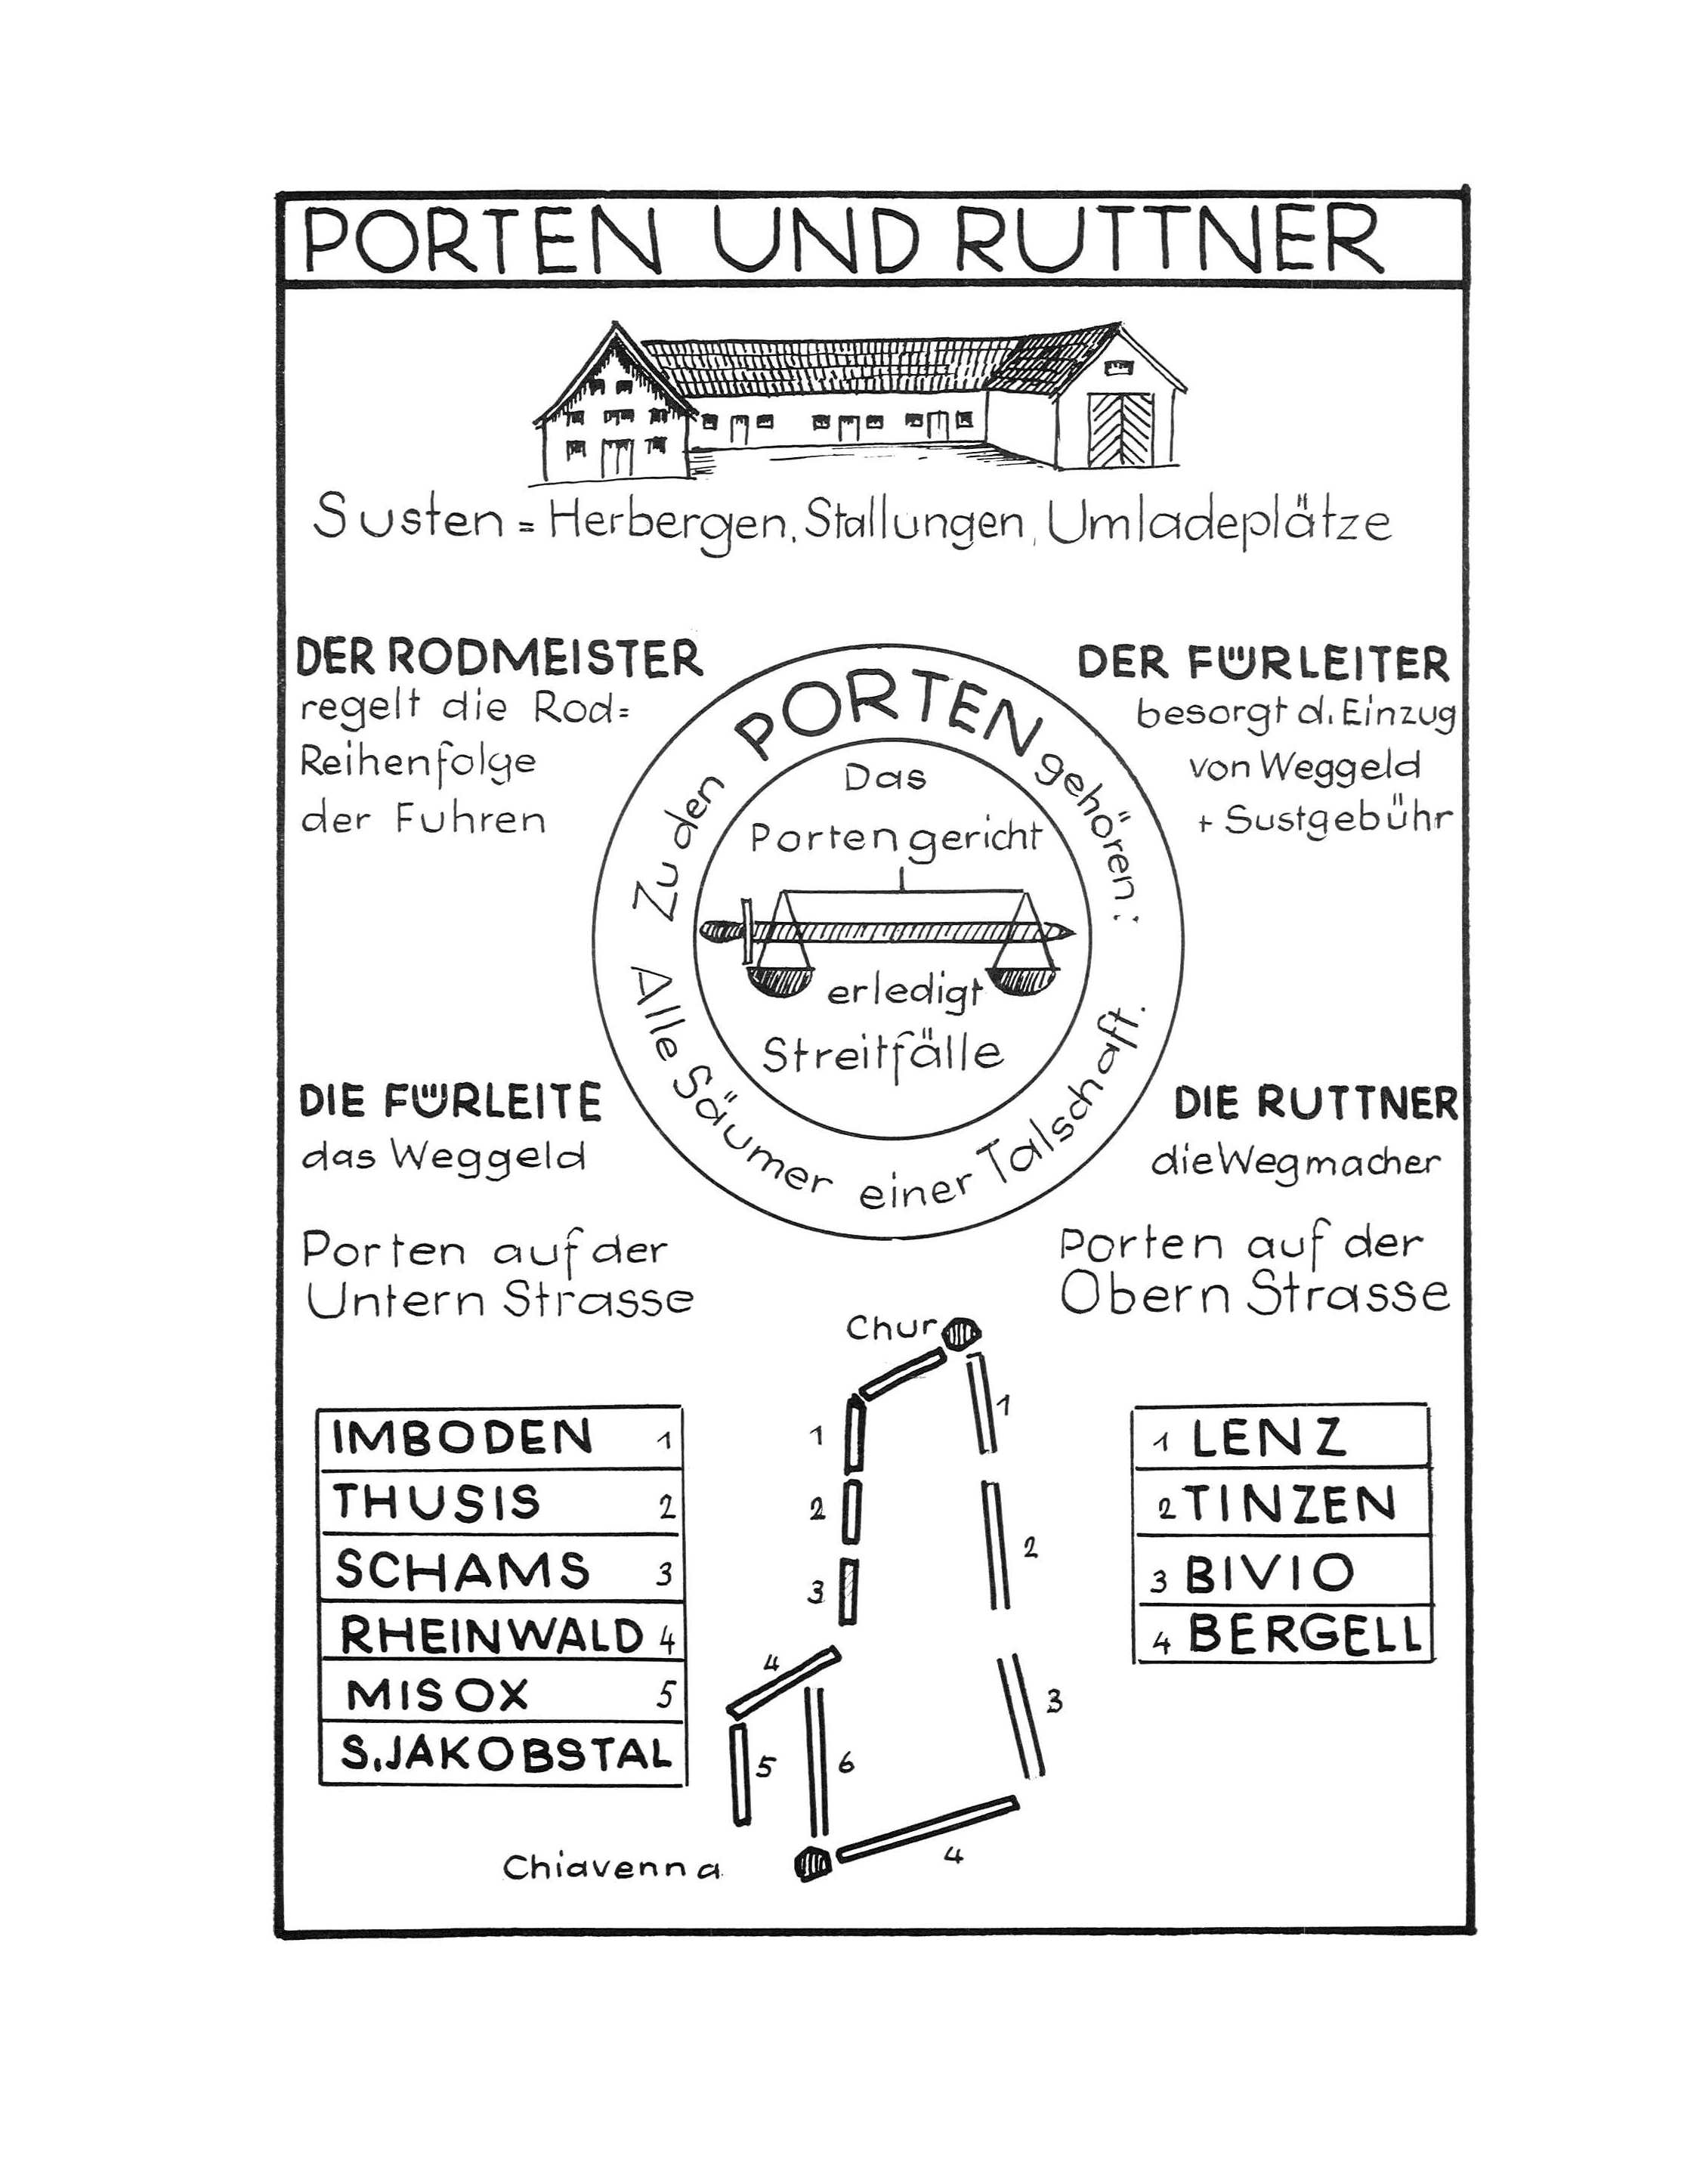 PORTEN UND RUTTNER
Susten = Herbergen, Stallungen, Umladeplätze
DER RODMEISTER
regelt die Rod=
Reihenfolge
der Fuhren
DER FÜRLEITER
besorgt d. Einzug
von Weggeld
+ Sustgebühr
Zu den PORTEN gehören:
Alle Säumer einer Talschaft.
Das
Portengericht
erledigt
Streitfälle
DIE FÜRLEITE
das Weggeld
DIE RUTTNER
die Wegmacher
Porten auf der
Untern Strasse
Porten auf der
Obern Strasse
IMBODEN 1
THUSIS 2
SCHAMS 3
RHEINWALD 4
MISOX 5
S.JAKOBSTAL
Chur
1
2
3
4
5
6
1
2
3
4
Chiavenna
1 LENZ
2 TINZEN
3 BIVIO
4 BERGELL